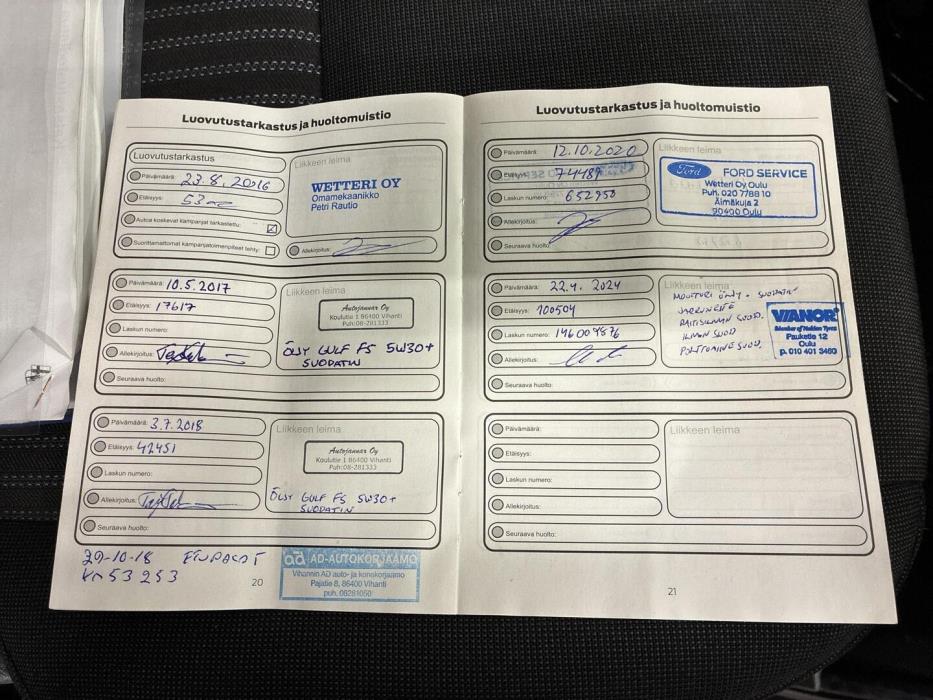 Luovutustarkastus ja huoltomuistio
Luovutustarkastus
Päivämäärä: 23.8.2016
Etäisyys:
Autoa koskevat kampanjat tarkastettu:
Suorittamattomat kampanjatoimenpiteet tehty:
Liikkeen leima
WETTERI OY
Omamekaanikko
Petri Rautio
Allekirjoitus:
Päivämäärä: 10.5.2017
Etäisyys: 17617
Laskun numero:
Allekirjoitus:
Seuraava huolto:
Liikkeen leima
Autojannar Oy
Koulutie 1 86400 Vihanti
Puh:08-281333
ÖLJY GULF FS 5W30+
SUODATIN
Päivämäärä: 3.7.2018
Etäisyys: 42451
Laskun numero:
Allekirjoitus:
Seuraava huolto:
Liikkeen leima
Autojannar Oy
Koulutie 1 86400 Vihanti
Puh:08-281333
ÖLJY GULF FS 5W30+
SUODATIN
29-10-18
KM 53 253
AD AD-AUTOKORJAAMO
Vihannin AD auto- ja konekorjaamo
Pajatie 8, 86400 Vihanti
puh. 08281050
20
Luovutustarkastus ja huoltomuistio
Päivämäärä: 12.10.2020
Etäisyys: 74489
Laskun numero: 652958
Allekirjoitus:
Seuraava huolto:
Liikkeen leima
Ford FORD SERVICE
Wetteri Oy Oulu
Puh. 020 7788 10
Äimäkuja 2
90400 Oulu
Päivämäärä: 22.4.2024
Etäisyys: 100504
Laskun numero: 146004876
Allekirjoitus:
Seuraava huolto:
Liikkeen leima
MOOTTORI ÖLJY + SUODATIN
JARRUNESTE
RAITISILMAN SUOD.
ILMAN SUOD
POLTTOAINE SUOD.
VIANOR
Member of Nokian Tyres
Pauketie 12
Oulu
p. 010 401 3460
Päivämäärä:
Etäisyys:
Laskun numero:
Allekirjoitus:
Seuraava huolto:
Liikkeen leima
21